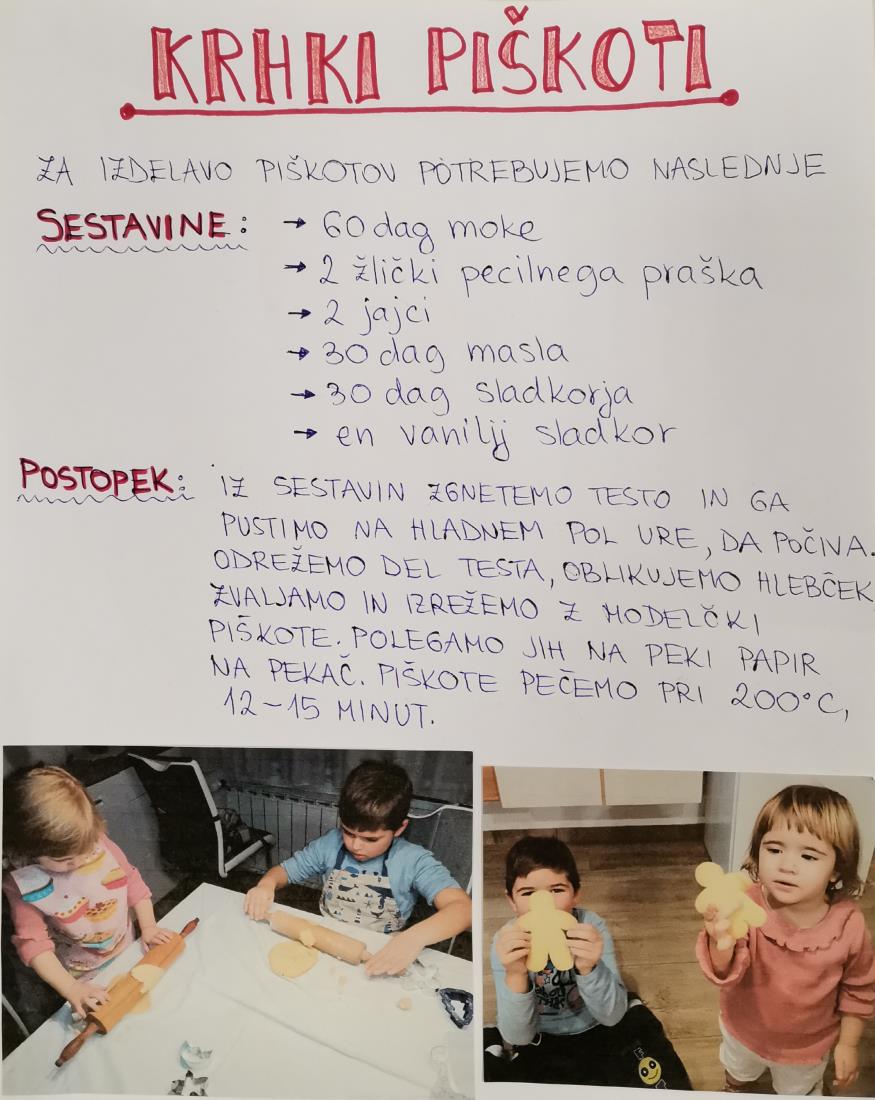 KRHKI PIŠKOTI
ZA IZDELAVO PIŠKOTOV POTREBUJEMO NASLEDNJE
SESTAVINE: → 60 dag moke
→ 2 žlički pecilnega praška
→ 2 jajci
→ 30 dag masla
→ 30 dag sladkorja
→ en vanilij sladkor
POSTOPEK: IZ SESTAVIN ZGNETEMO TESTO IN GA
PUSTIMO NA HLADNEM POL URE, DA POČIVA.
ODREŽEMO DEL TESTA, OBLIKUJEMO HLEBČEK
ZVALJAMO IN IZREŽEMO Z MODELČKI
PIŠKOTE. POLEGAMO JIH NA PEKI PAPIR
NA PEKAČ. PIŠKOTE PEČEMO PRI 200°C,
12-15 MINUT.